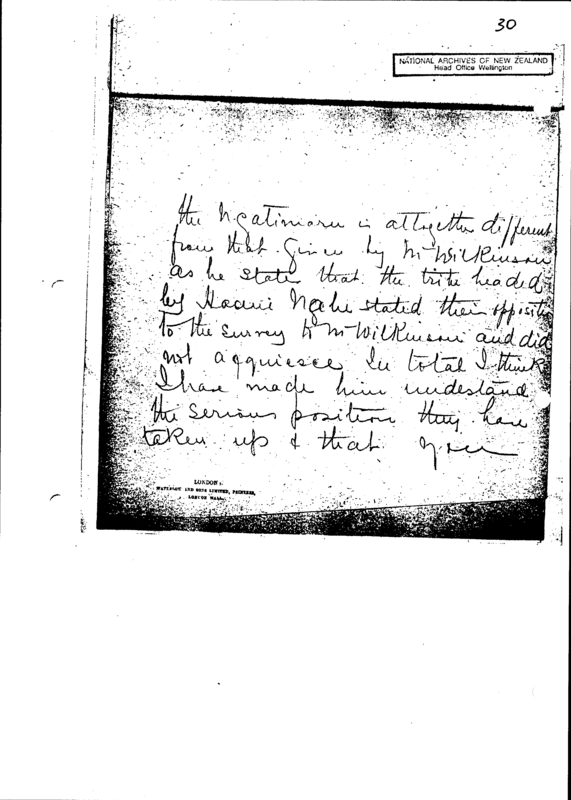 30
NATIONAL ARCHIVES OF NEW ZEALAND
Head Office Wellington
the Ngatimaru is altogether different
from that given by Mr Wilkinson
as he states that the tribe headed
by Hoani Nahe stated their opposition
to the survey to Mr Wilkinson and did
not acquiesce In total I think
I have made him undestand
the serious position they have
taken up & that you
LONDON:
WATERLOW AND SONS LIMITED, PRINTERS,
LONDON WALL.